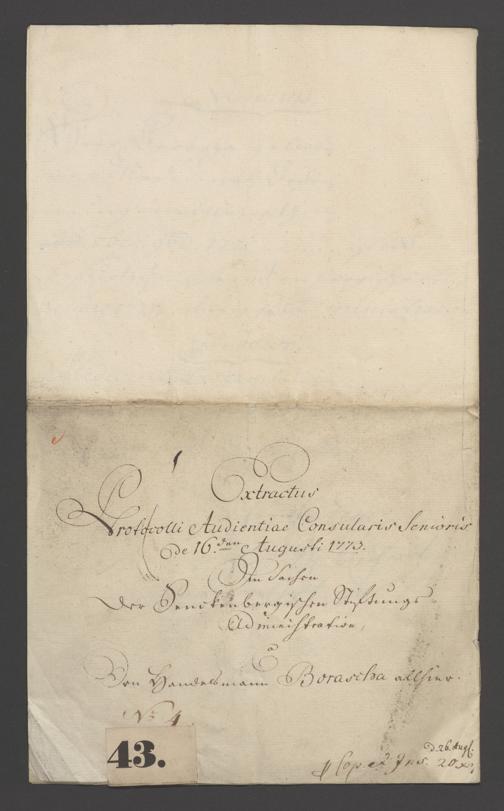 Extractus
Protocolli Audientiae Consularis Senioris
de 16.ten Augusti 1773.
In Sachen
der Senckenbergischen Stiftungs-
Administration,
a
Den Handelsmann Borascha allhier.
No. 4.
43.
d. 26. Aug.
Cop. et Ins. 20 xr.